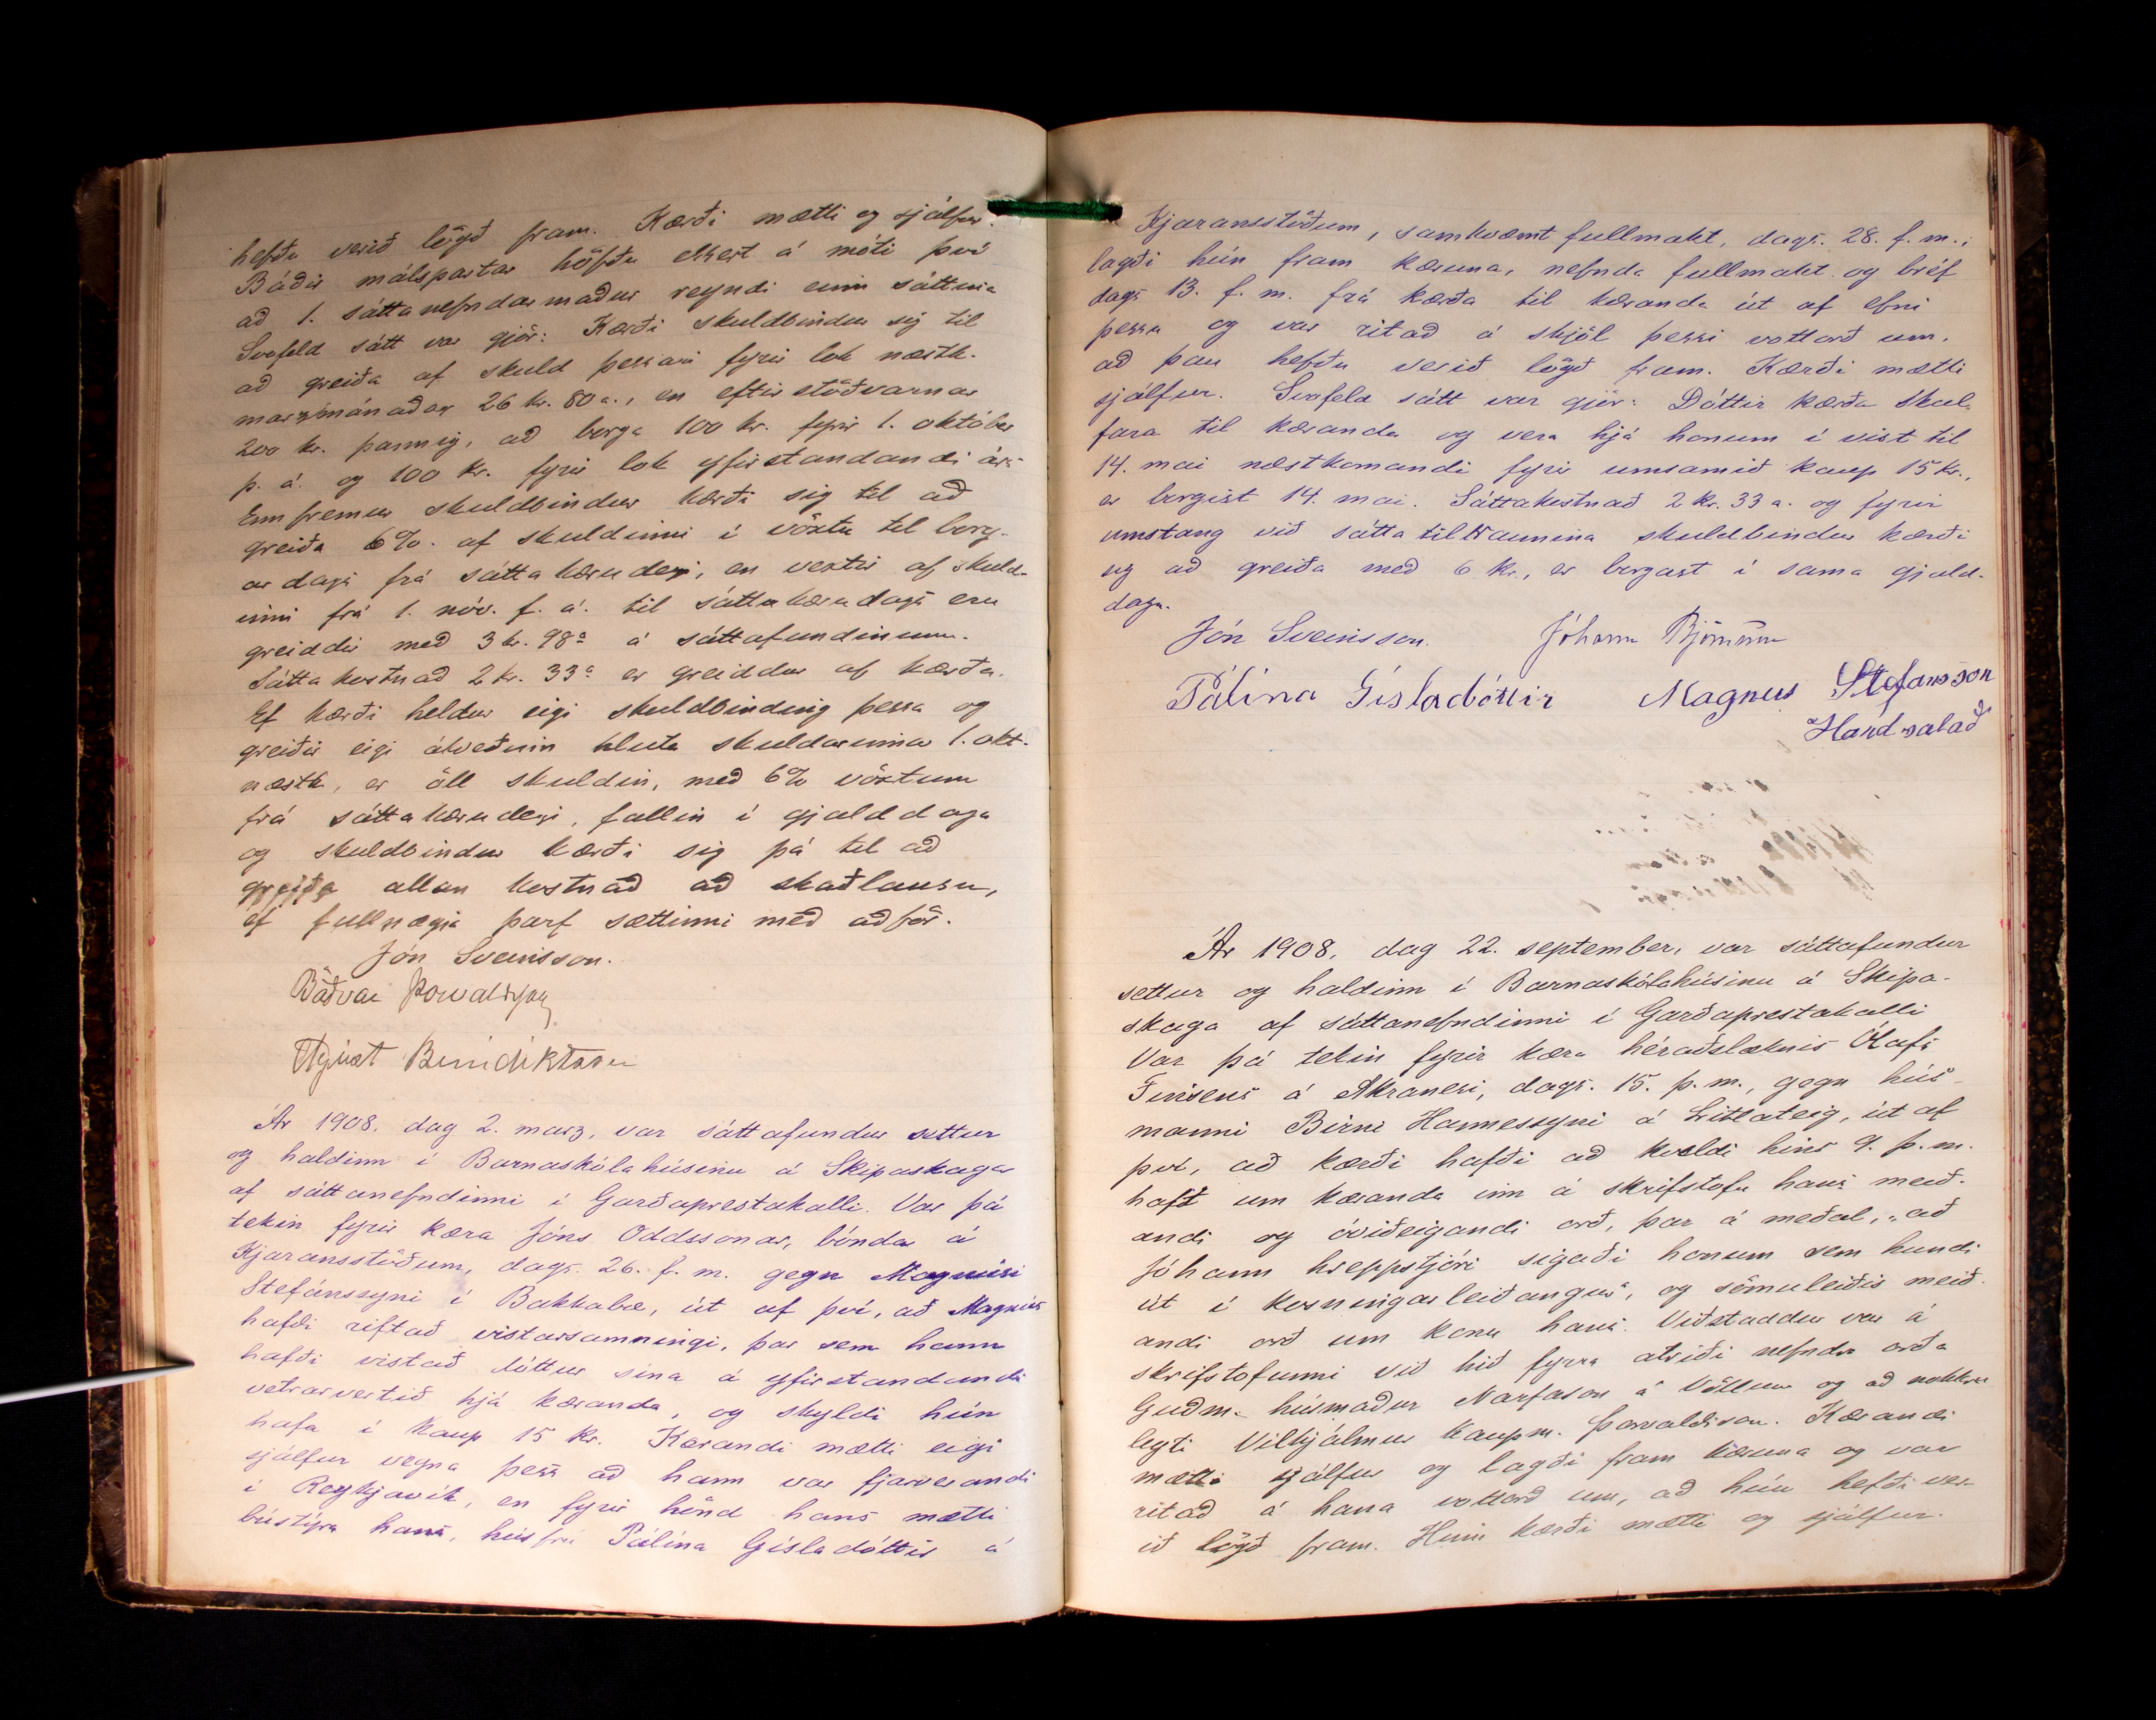 hefðu verið lögð fram. Kærði mætti og sjálfur.
Báðir málspartar höfðu ekkert á móti því
að 1. sáttanefndarmaður reyndi einn sáttina
Svofeld sátt var gjör: Kærði skuldbindur sig til
að greiða af skuld þessari fyrir lok næstk.
marzmánaðar 26 kr. 80 a., en eftirstöðvarnar
200 kr. þannig, að borga 100 kr. fyrir 1. október
þ. á. og 100 kr. fyrir lok yfirstandandi árs
Enn fremur skuldbindur kærði sig til að
greiða 6%. af skuldinni í vöxtu til borg-
ar dags frá sáttakærudegi, en vextir af skuld-
inni frá 1. nóv. f. á. til sáttakærudags eru
greiddir með 3 kr. 98 a á sáttafundinum.
Sáttakostnað 2 kr. 33 a er greiddur af kærða.
Ef kærði heldur eigi skuldbinding þessa og
greiðir eigi ákveðinn hluta skuldarinnar 1. okt.
næstk, er öll skuldin, með 6% vöxtum
frá sáttakærudegi, fallin í gjalddaga
og skuldbindur kærði sig þá til að
greiða allan kostnað að skaðlausu,
ef fullnægja þarf sættinni með aðför.
Jón Sveinsson.
Böðvar Þorvaldsson
Ágúst Benediktsson
Ár 1908, dag 2. marz, var sáttafundur settur
og haldinn í Barnaskólahúsinu á Skipaskaga
af sáttanefndinni í Garðaprestakalli. Var þá
tekin fyrir kæra Jóns Oddssonar, bónda á
Kjaransstöðum, dags. 26. f. m. gegn Magnúsi
Stefánssyni í Bakkabæ, út af því, að Magnús
hafði riftað vistarsamningi, þar sem hann
hafði vistað dóttur sína á yfirstandandi
vetrarvertið hjá kæranda, og skyldi hún
hafa í kaup 15 kr. Kærandi mætti eigi
sjálfur vegna þess að hann var fjarverandi
í Reykjavík, en fyrir hönd hans mætti
bústýra hans, húsfrú Pálína Gísladóttir á
Kjaransstöðum, samkvæmt fullmakt, dags. 28. f. m.;
lagði hún fram kæruna, nefnda fullmakt og bréf
dags 13. f. m. frá kærða til kæranda út af efni
þessu og var ritað á skjöl þessi vottorð um,
að þau hefðu verið lögð fram. Kærði mætti
sjálfur. Svofeld sátt var gjör: Dóttir kærða skal
fara til kæranda og vera hjá honum í vist til
14. mai næstkomandi fyrir umsamið kaup 15 kr.,
er borgist 14. mai. Sáttakostnað 2 kr. 33 a. og fyrir
umstang við sáttatilraunina skuldbindur kærði
sig að greiða með 6 kr., er borgast í sama gjald-
daga.
Jón Sveinsson. Jóhann Björnsson
Pálína Gísladóttir Magnus Stefansson
Handsalað
Ár 1908, dag 22. september, var sáttafundur
settur og haldinn í Barnaskólahúsinu á Skipa-
skaga af sáttanefndinni í Garðaprestakalli
Var þá tekin fyrir kæra héraðslæknis Ólafs
Finsens á Akranesi, dags. 15. þ. m., gegn hús-
manni Birni Hannessyni á Litlateig, út af
því, að kærði hafði að kveldi hins 9. þ. m.
haft um kæranda inn á skrifstofu hans meið-
andi og óviðeigandi orð, þar á meðal, „að
Jóhann hreppstjóri sigaði honum sem hundi
út í kosningarleiðangur“, og sömuleiðis meið-
andi orð um konu hans. Viðstaddur var á
skrifstofunni við hið fyrra atriði nefndra orða
Guðm. húsmaður Narfason á Völlum og að nokkru
leyti Vilhjálmur kaupm. Þorvaldsson. Kærandi
mætti sjálfur og lagði fram kæruna og var
ritað á hana vottorð um, að hún hefði ver-
ið lögð fram. Hinn kærði mætti og sjálfur.